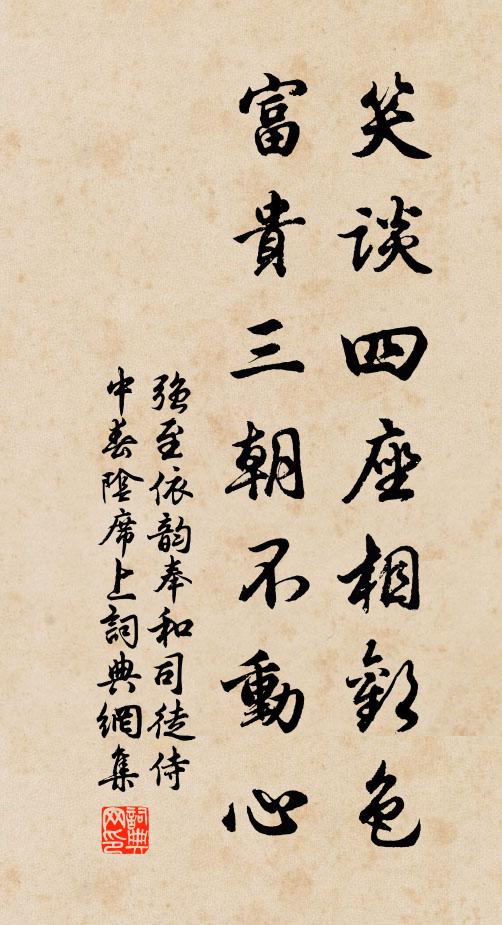 笑談四座相歡色
富貴三朝不動心
强至依韵奉和司徒侍
中春陰席上詞典網集
詞典
网印